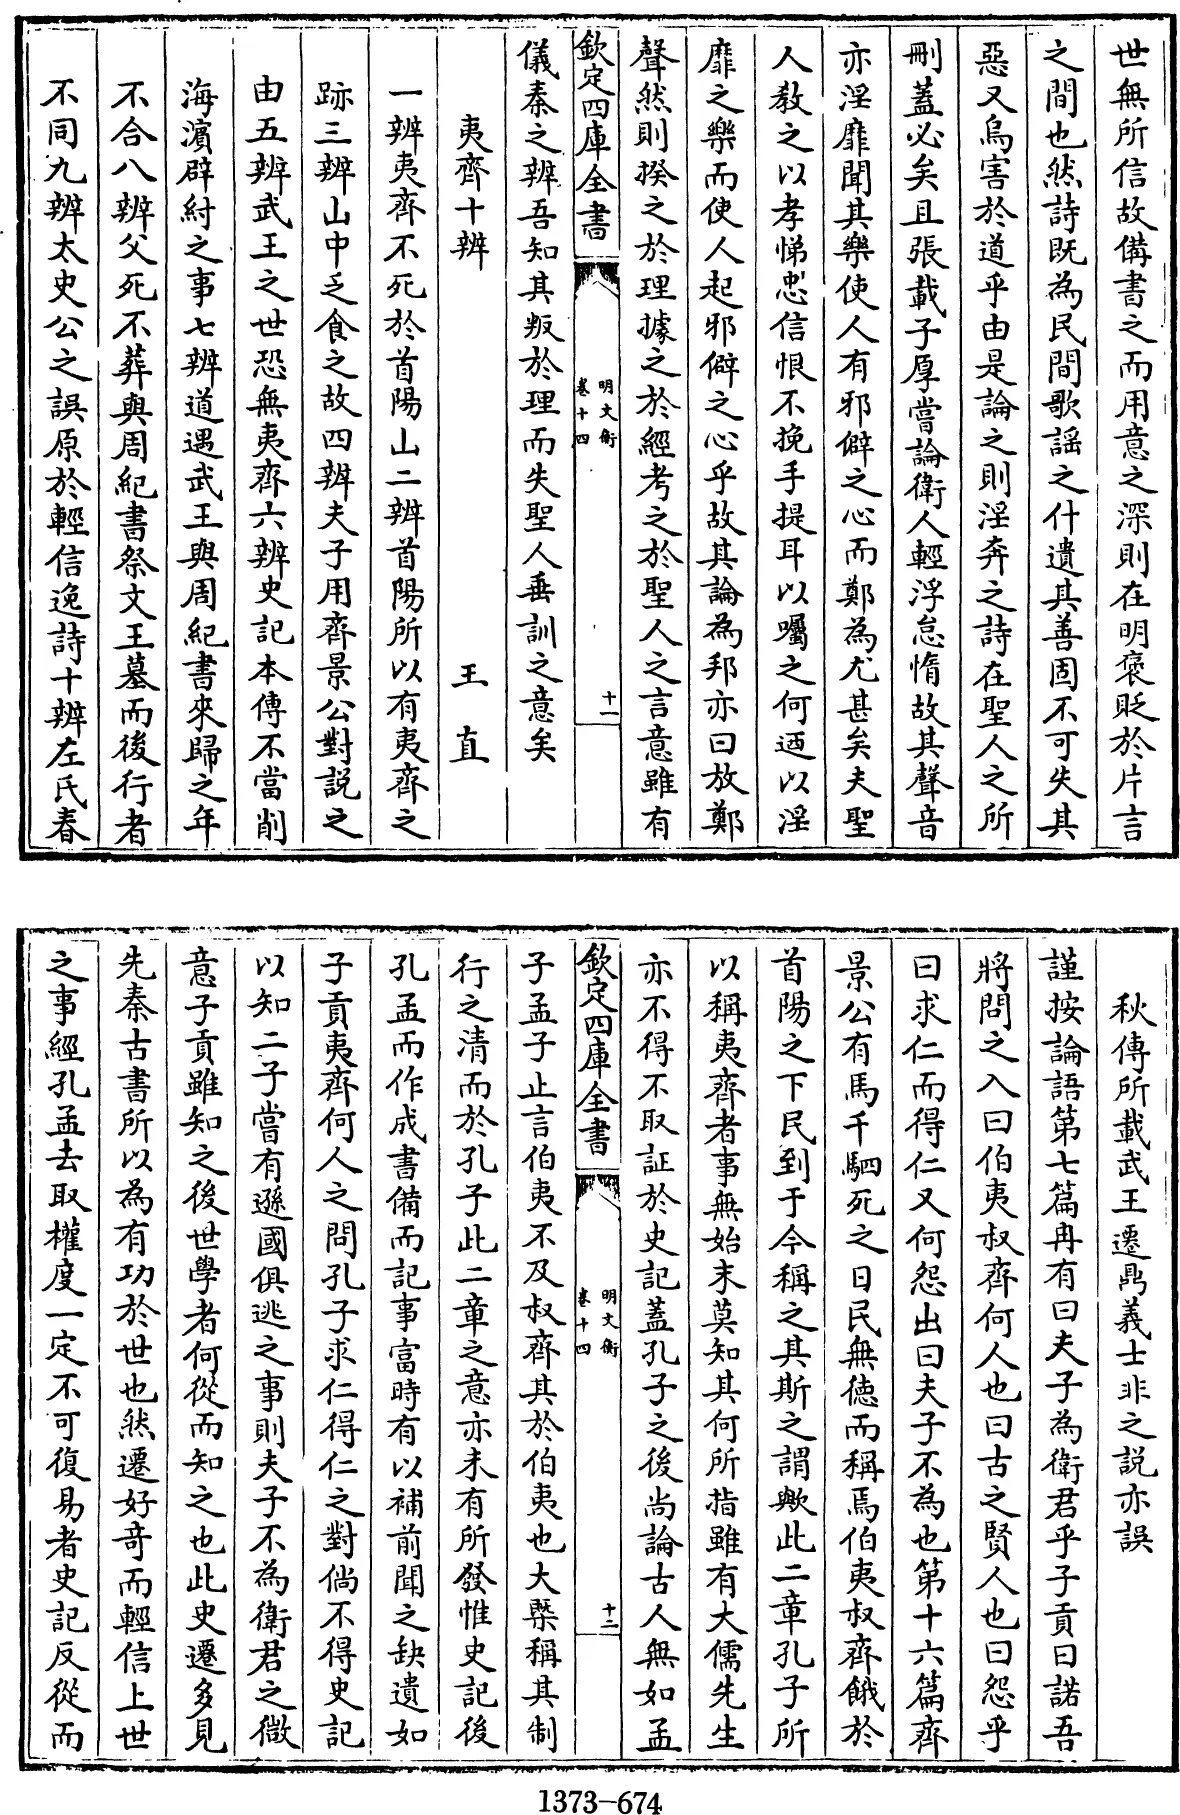 世無所信故備書之而用意之深則在明褒貶於片言
之間也然詩既為民間歌謡之什遺其善固不可失其
惡又烏害於道乎由是論之則淫奔之詩在聖人之所
刪蓋必矣且張載子厚嘗論衛人輕浮怠惰故其聲音
亦淫靡聞其樂使人有邪僻之心而鄭為尤甚矣夫聖
人教之以孝悌忠信恨不挽手提耳以囑之何迺以淫
靡之樂而使人起邪僻之心乎故其論為邦亦曰放鄭
聲然則揆之於理據之於經考之於聖人之言意雖有
欽定四庫全書
明文衡
卷十四
十一
儀秦之辨吾知其叛於理而失聖人垂訓之意矣
夷齊十辨
王直
一辨夷齊不死於首陽山二辨首陽所以有夷齊之
跡三辨山中乏食之故四辨夫子用齊景公對説之
由五辨武王之世恐無夷齊六辨史記本傳不當削
海濱辟紂之事七辨道遇武王與周紀書來歸之年
不合八辨父死不葬與周紀書祭文王墓而後行者
不同九辨太史公之誤原於輕信逸詩十辨左氏春
秋傳所載武王遷鼎義士非之説亦誤
謹按論語第七篇冉有曰夫子為衛君乎子貢曰諾吾
將問之入曰伯夷叔齊何人也曰古之賢人也曰怨乎
曰求仁而得仁又何怨出曰夫子不為也第十六篇齊
景公有馬千駟死之日民無徳而稱焉伯夷叔齊餓於
首陽之下民到于今稱之其斯之謂歟此二章孔子所
以稱夷齊者事無始末莫知其何所指雖有大儒先生
亦不得不取証於史記蓋孔子之後尚論古人無如孟
欽定四庫全書
明文衡
卷十四
十二
子孟子止言伯夷不及叔齊其於伯夷也大槩稱其制
行之清而於孔子此二章之意亦未有所發惟史記後
孔孟而作成書備而記事富時有以補前聞之缺遺如
子貢夷齊何人之問孔子求仁得仁之對倘不得史記
以知二子嘗有遜國俱逃之事則夫子不為衛君之微
意子貢雖知之後世學者何從而知之也此史遷多見
先秦古書所以為有功於世也然遷好竒而輕信上世
之事經孔孟去取權度一定不可復易者史記反從而
1373-674